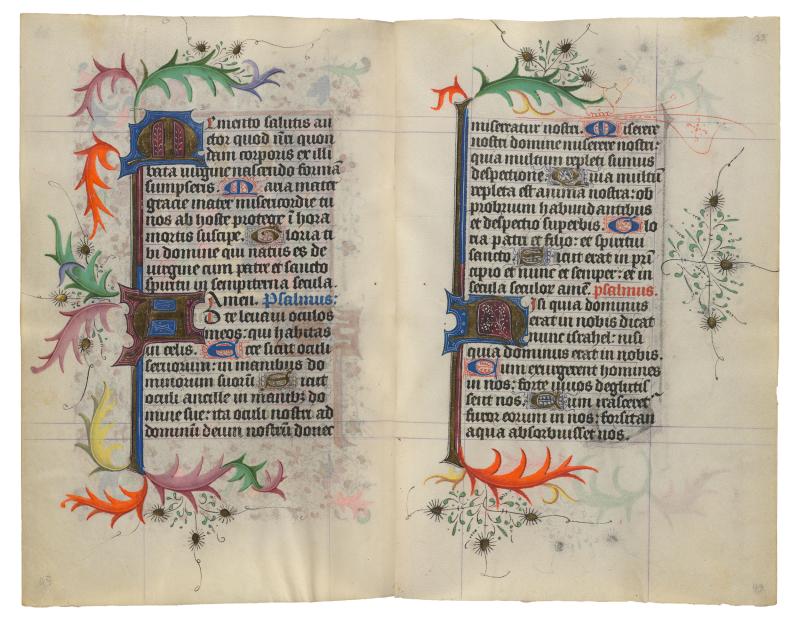 Memento salutis au
ctor quod nr̄i quon
dam corporis ex illi
bata uirgine nascendo formā
sumpseris. Maria mater
gracie mater misericordie tu
nos ab hoste protege ⁊ hora
mortis suscipe. Gloria ti
bi domine qui natus es de
uirgine cum patre et sancto
spiritu in sempiterna secula.
Amen. Psalmus:
Ad te leuaui oculos
meos: qui habitas
in celis. Ecce sicut oculi
seruorum: in manibus do
minorum suorū. Sicut
oculi ancille in manibꝫ do
mine sue: ita oculi nostri ad
dominū deum nostrū donec
misereatur nostri. Miserere
nostri domine miserere nostri:
quia multum repleti sumus
despectione. Quia multū
repleta est anima nostra: ob
probrium habundantibus
et despectio superbis. Glo
ria patri et filio: et spiritui
sancto. Sicut erat in prin
cipio et nunc et semper: et in
secula seculor amē. psalmus.
Nisi quia dominus
erat in nobis dicat
nunc israhel: nisi
quia dominus erat in nobis.
Cum exurgerent homines
in nos: forte uiuos deglutis
sent nos. Cum irasceret᷑
furor eorum in nos: forsitan
aqua absorbuisset nos.